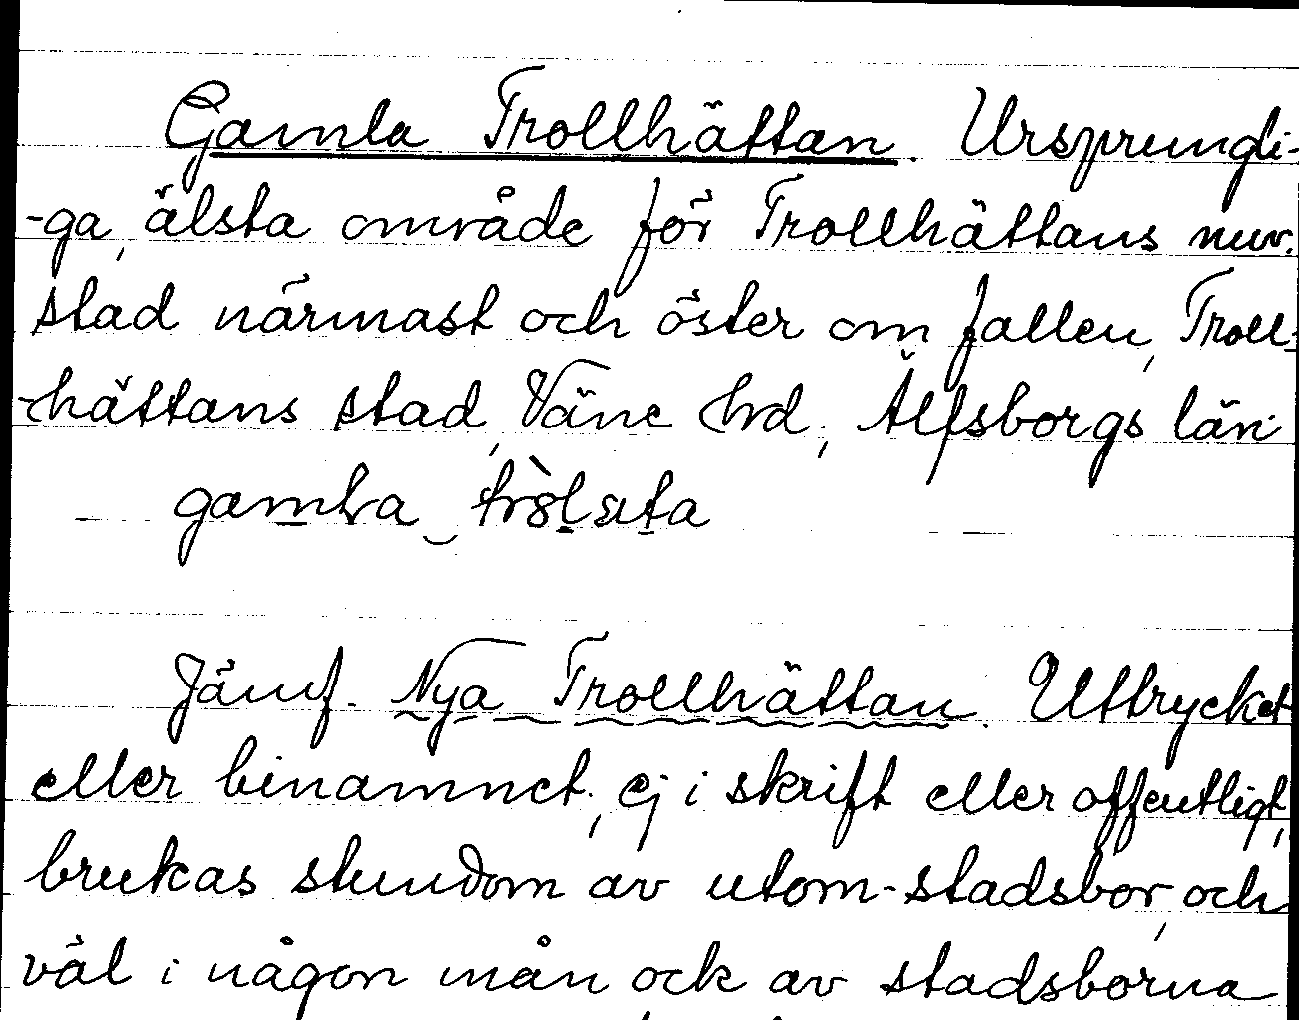 Gamla Trollhättan. Ursprungli-
-ga, älsta område för Trollhättans nuv.
stad närmast och öster om fallen, Troll-
-hättans stad, Väne hrd, Älfsborgs län.
gamla
Jämf. Nya Trollhättan. Uttrycket
eller binamnet, ej i skrift eller offentligt,
brukas stundom av utom-stadsbor, och
väl i någon mån ock av stadsborna